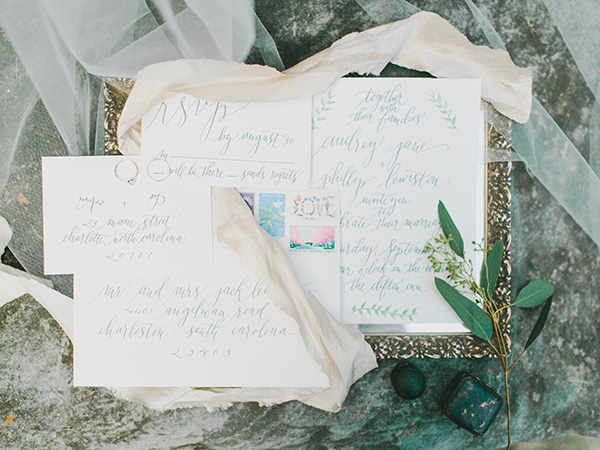 rsvp
by august 30
m
will be there – sends regrets
together
with
their families
audrey jane
+
philly lewiston
invite you
to
brate their marriage
urday, september
our o'clock in the
the clifton inn
A + P
23 main street
charlotte, north carolina
20701
LOVE
mr and mrs jack le
4001 angelican road
charleston south carolina
29403